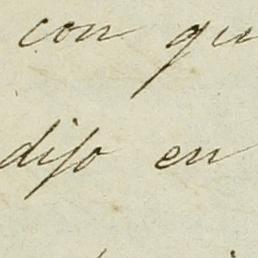 con qu
dijo en